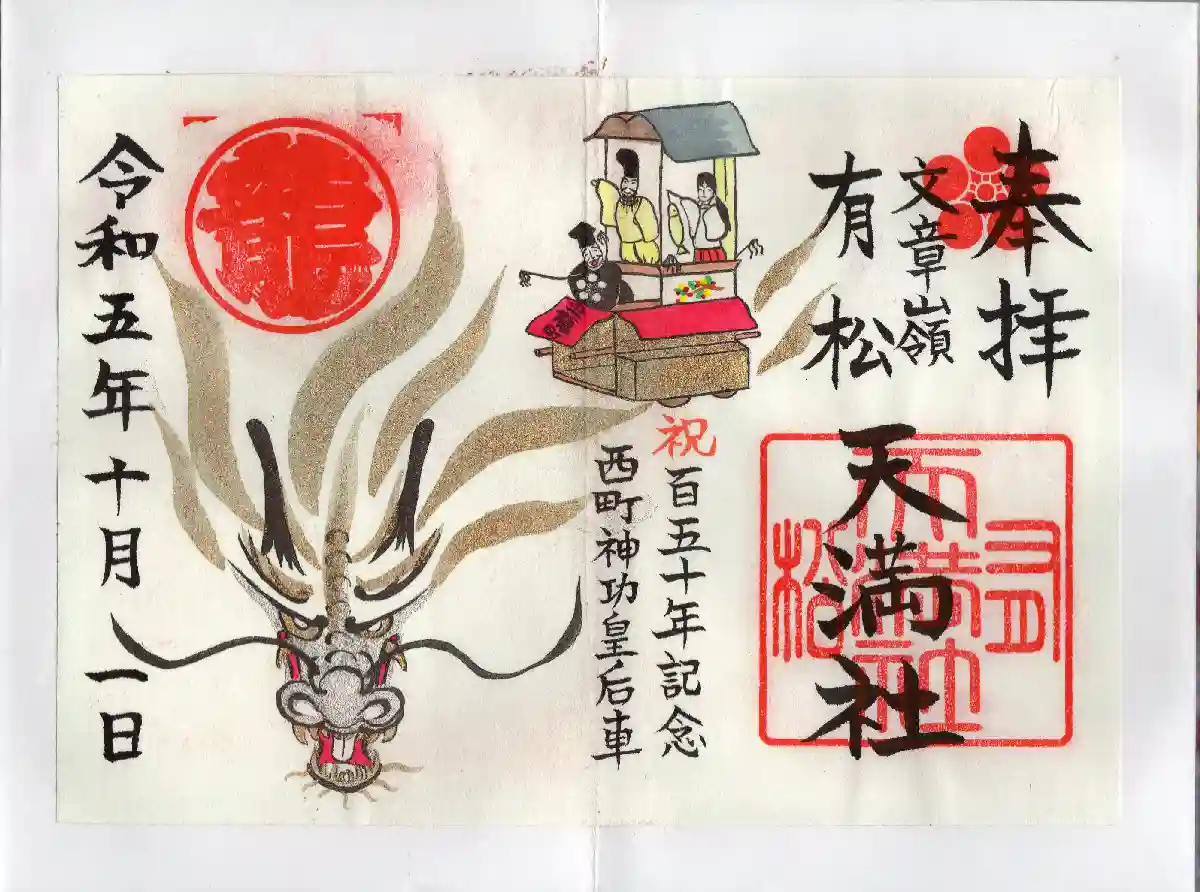 奉拝
文章嶺
有松
天満社
祝
百五十年記念
西町神功皇后車
龍
令和五年十月一日
有
天満社
松